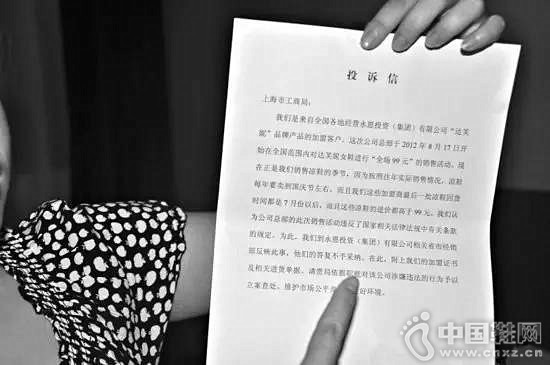 投 诉 信
上海市工商局：
我们是来自全国各地经营永恩投资（集团）有限公司“达芙
妮”品牌产品的加盟客户。这次公司总部于 2012 年 8 月 17 日开
始在全国范围内对达芙妮女鞋进行“全场 99 元”的销售活动。现
在正是我们销售凉鞋的季节，因为按照往年实际销售情况，凉鞋
每年要卖到国庆节左右，而且我们这些加盟商最后一批凉鞋回货
时间都是 7 月份以后，而且这些凉鞋的进价都高于 99 元。我们认
为公司总部的此次销售活动违反了国家相关法律法规中有关条款
的规定。为此，我们到永恩投资（集团）有限公司相关省市经销
部反映此事，他们的答复不予采纳。在此，附上我们的加盟证书
及相关进货单据。请贵局依照职能对该公司涉嫌违法的行为予以
立案查处。维护市场公平 好环境。
中国鞋网
www.cnxz.cn